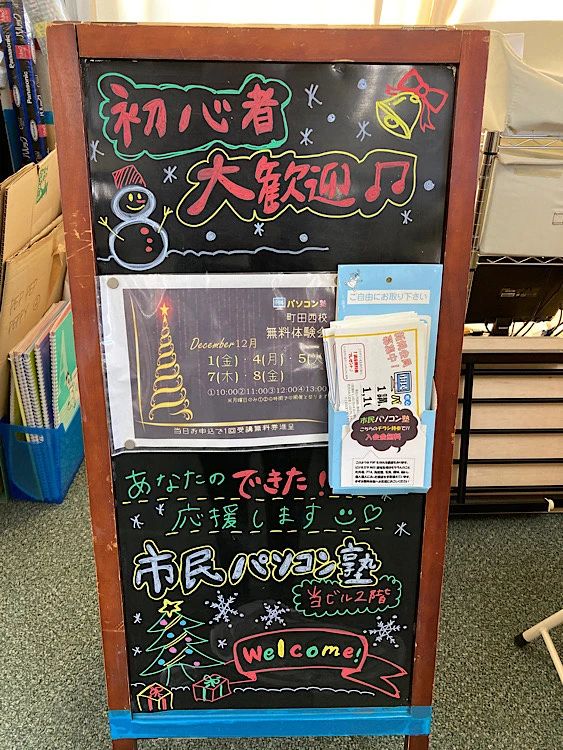 初心者
大歓迎♫
パソコン塾
町田西校
無料体験会
December 12月
1(金)・4(月)・5(
7(木)・8(金)
①10:00②11:00③12:00④13:00
当日お申込で1回受講無料券進呈
ご自由にお取り下さい
市民パソコン塾
こちらのチラシ持参で!!
入会金無料
あなたの できた!
応援します
市民パソコン塾
当ビル2階
Welcome!
Panasonic